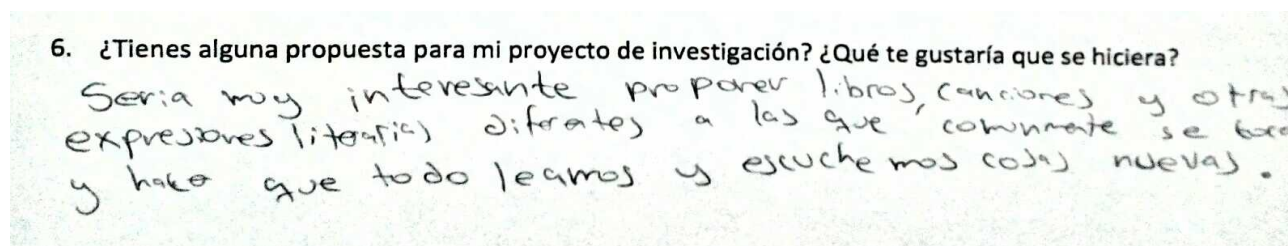 6. ¿Tienes alguna propuesta para mi proyecto de investigación? ¿Qué te gustaría que se hiciera?
Seria muy interesante proponer libros, canciones y otras
expresiones literarias diferentes a las que comunmente se
y que todo leamos y escuchemos cosas nuevas.